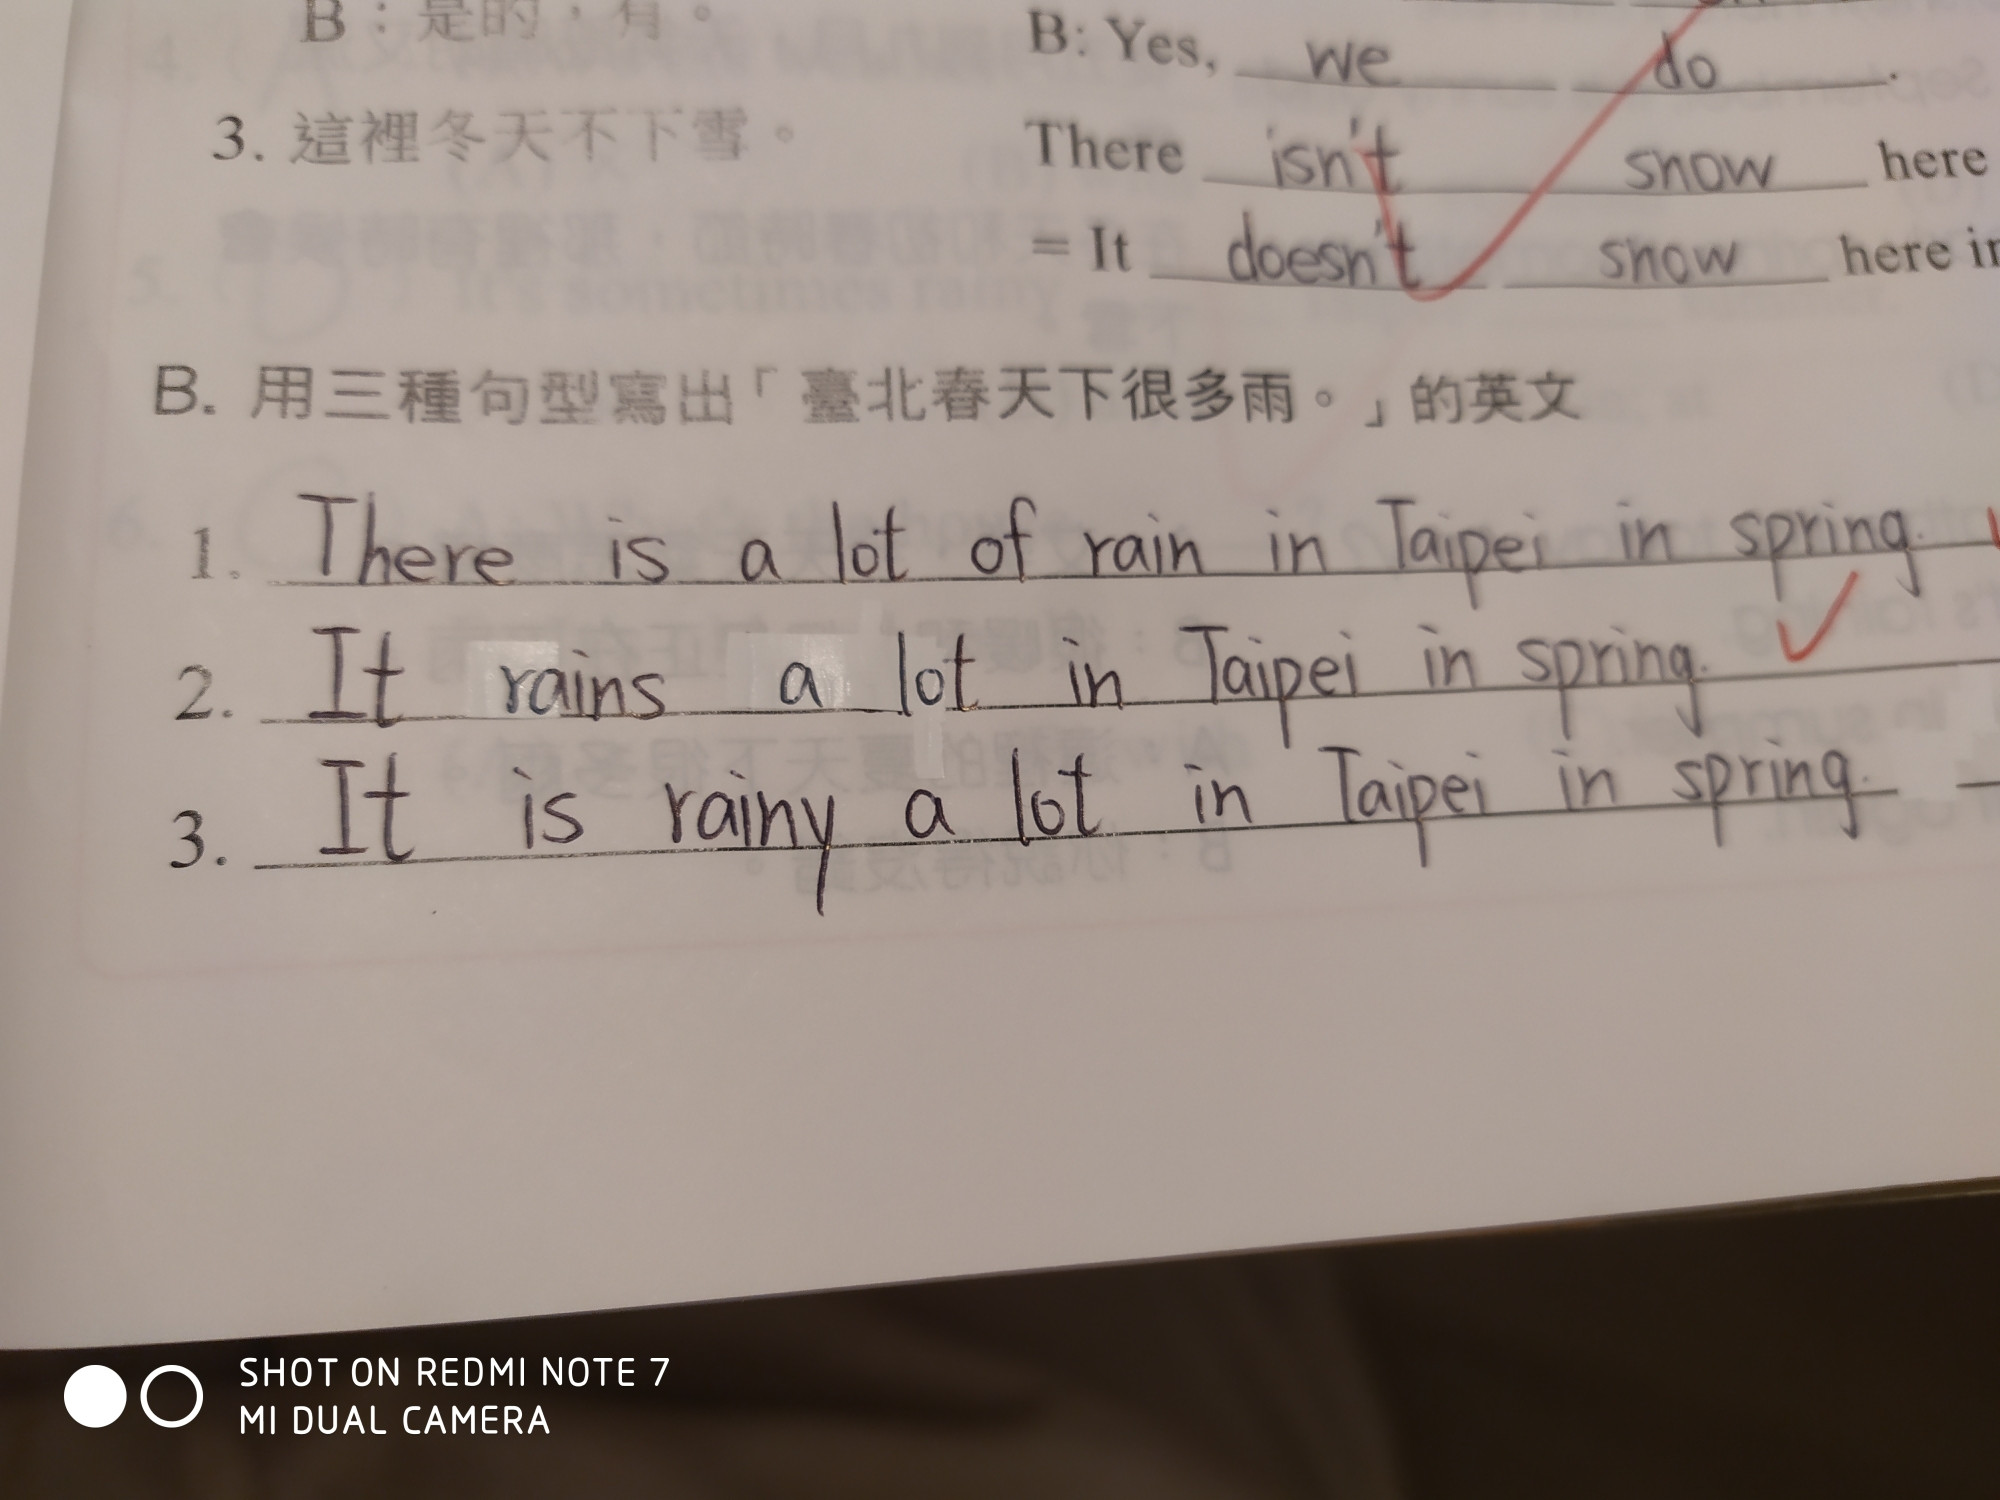 B：是的，有。
B: Yes, we do.
3. 這裡冬天不下雪。
There isn't snow here
= It doesn't snow here in
B. 用三種句型寫出「臺北春天下很多雨。」的英文
1. There is a lot of rain in Taipei in spring.
2. It rains a lot in Taipei in spring.
3. It is rainy a lot in Taipei in spring.
SHOT ON REDMI NOTE 7
MI DUAL CAMERA